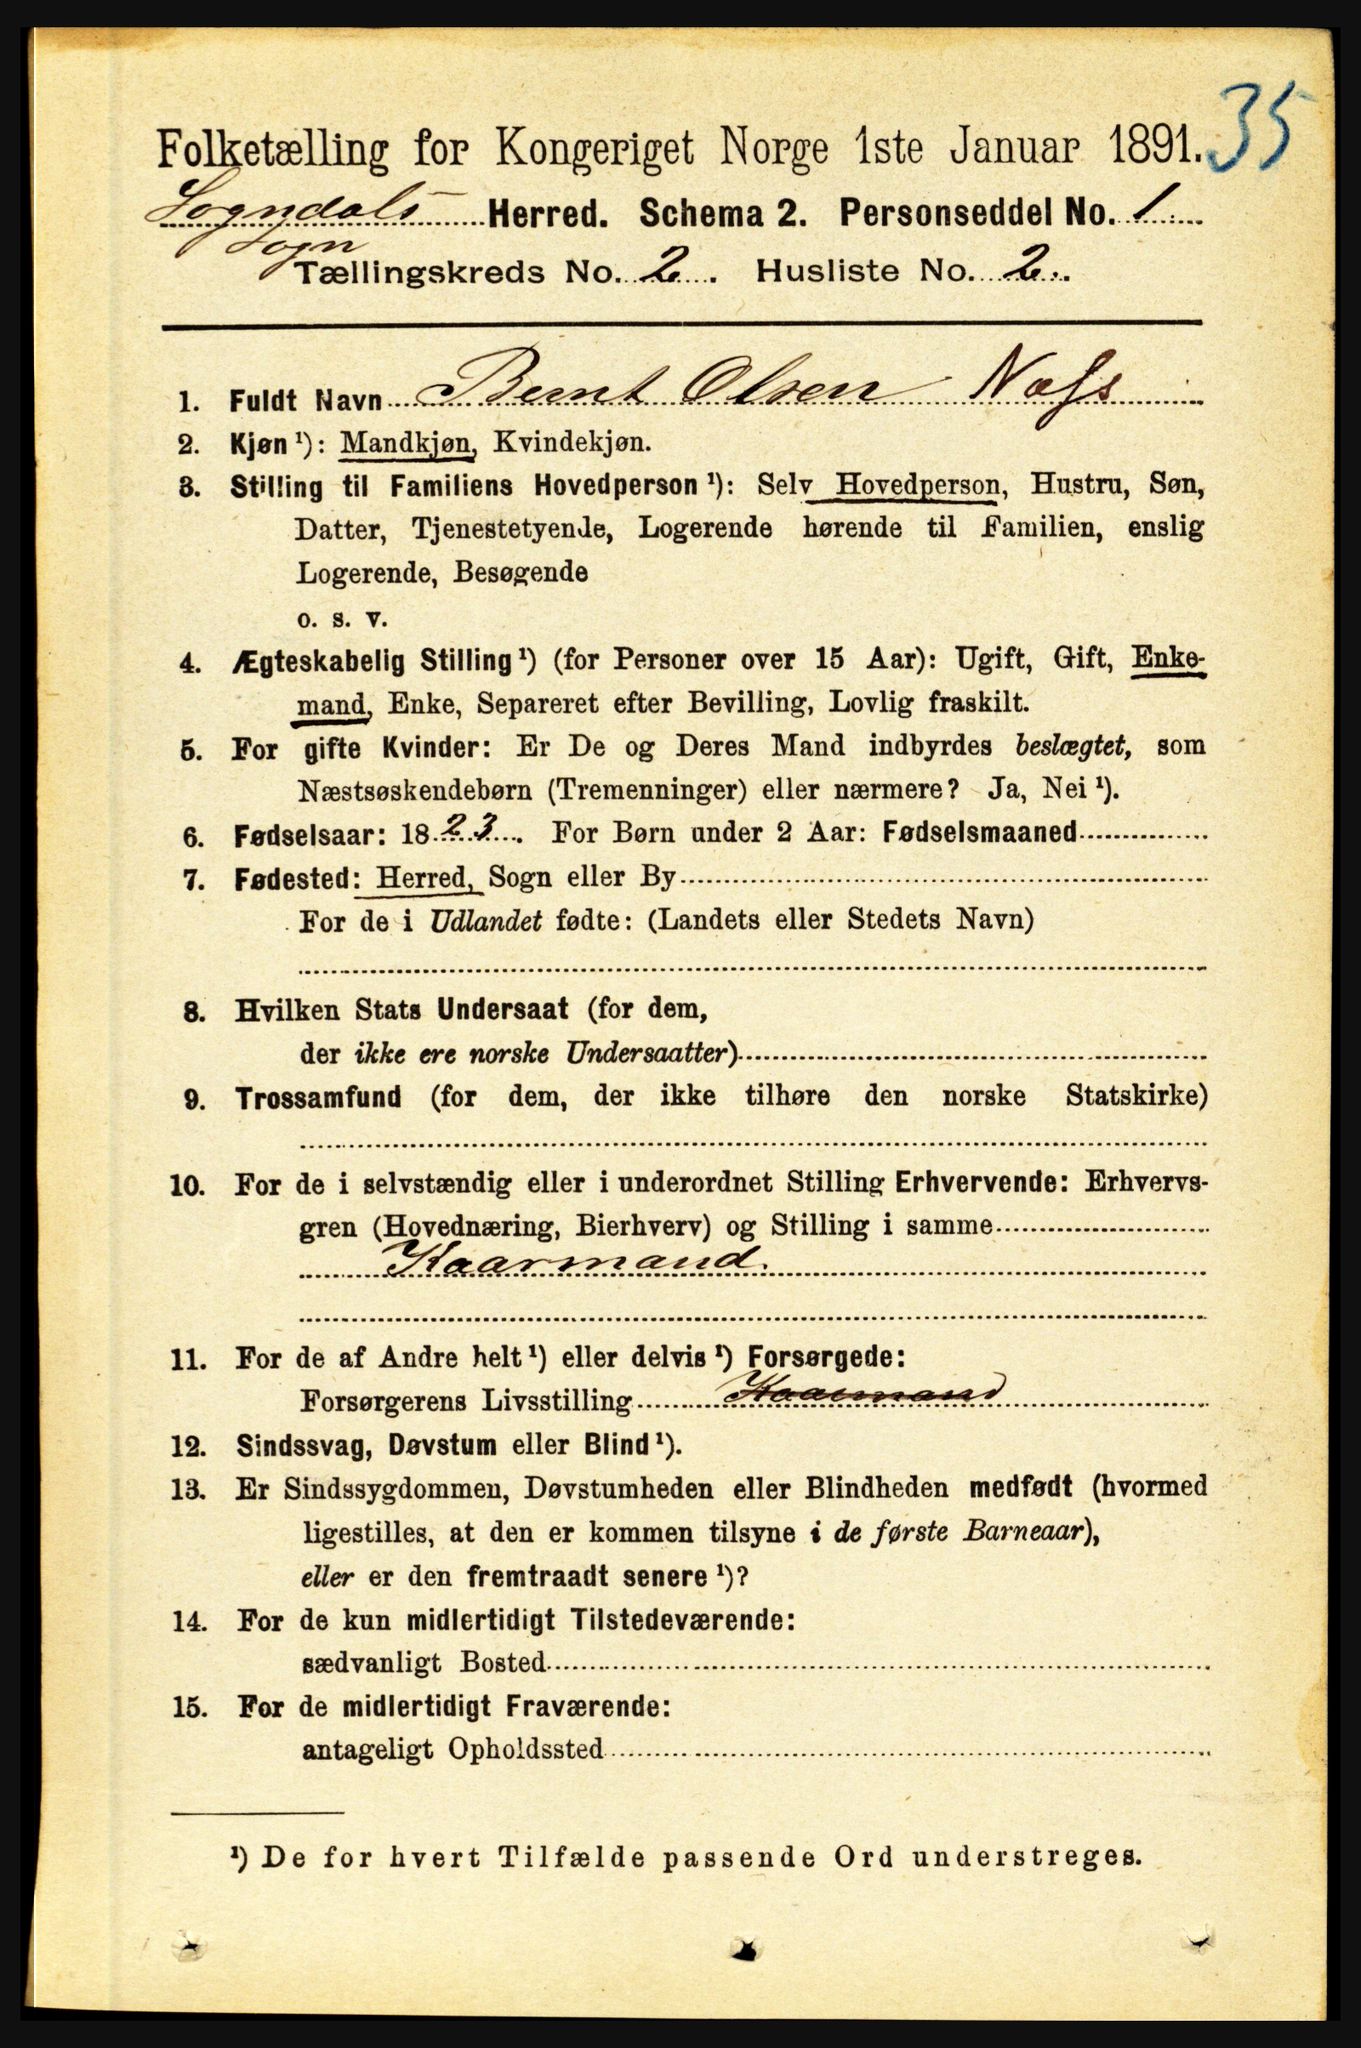 35
Folketælling for Kongeriget Norge 1ste Januar 1891.
Sogndals Herred. Schema 2. Personseddel No. 1
Sogn
Tællingskreds No. 2. Husliste No. 2.
1. Fuldt Navn Bernt Olsen Næss
2. Kjøn¹): Mandkjøn, Kvindekjøn.
3. Stilling til Familiens Hovedperson¹): Selv Hovedperson, Hustru, Søn,
Datter, Tjenestetyende, Logerende hørende til Familien, enslig
Logerende, Besøgende
o. s. v.
4. Ægteskabelig Stilling¹) (for Personer over 15 Aar): Ugift, Gift, Enke-
mand, Enke, Separeret efter Bevilling, Lovlig fraskilt.
5. For gifte Kvinder: Er De og Deres Mand indbyrdes beslægtet, som
Næstsøskendebørn (Tremenninger) eller nærmere? Ja, Nei¹).
6. Fødselsaar: 1823. For Børn under 2 Aar: Fødselsmaaned
7. Fødested: Herred, Sogn eller By
For de i Udlandet fødte: (Landets eller Stedets Navn)
8. Hvilken Stats Undersaat (for dem,
der ikke ere norske Undersaatter)
9. Trossamfund (for dem, der ikke tilhøre den norske Statskirke)
10. For de i selvstændig eller i underordnet Stilling Erhvervende: Erhvervs-
gren (Hovednæring, Bierhverv) og Stilling i samme
Kaarmand.
11. For de af Andre helt¹) eller delvis¹) Forsørgede:
Forsørgerens Livsstilling Kaarmand
12. Sindssvag, Døvstum eller Blind¹).
13. Er Sindssygdommen, Døvstumheden eller Blindheden medfødt (hvormed
ligestilles, at den er kommen tilsyne i de første Barneaar),
eller er den fremtraadt senere¹)?
14. For de kun midlertidigt Tilstedeværende:
sædvanligt Bosted
15. For de midlertidigt Fraværende:
antageligt Opholdssted
¹) De for hvert Tilfælde passende Ord understreges.